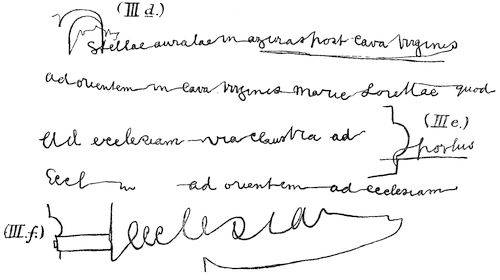 (III d.)
Stellae auratae in azuras post cava Virginis
ad orientem in cava Virginis Marie Lorettae quod
Ad ecclesiam via claustra ad
(III e.)
portus
Eccl ad orientem ad ecclesiam
(III. f.) ecclesiam